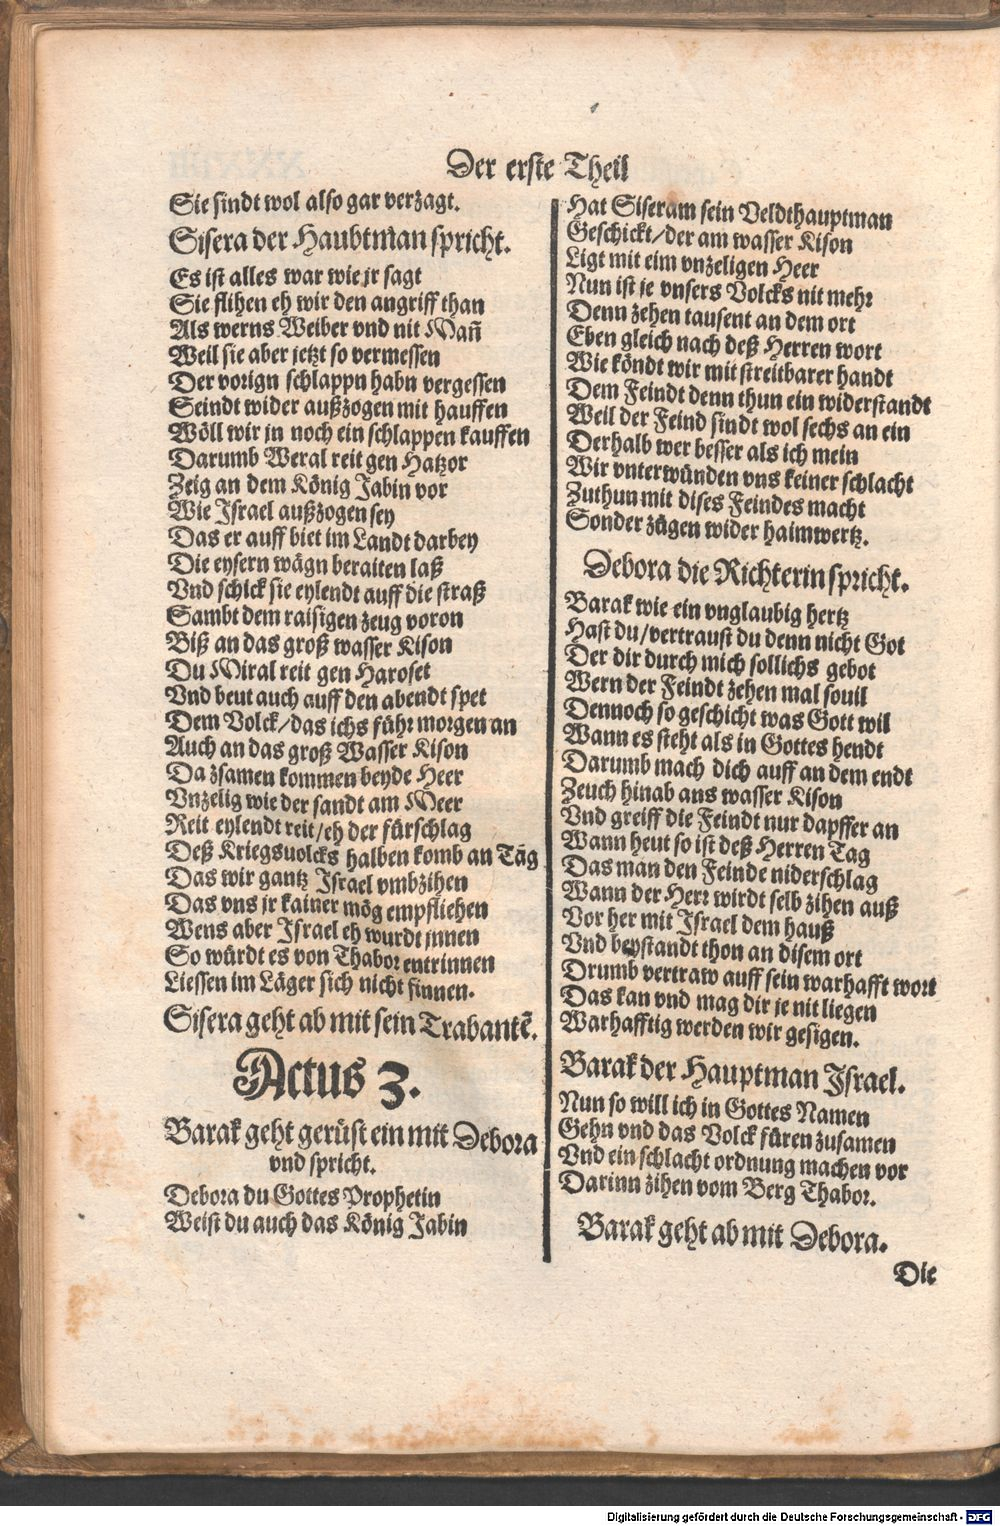 Der erste Theil
Sie sindt wol also gar verzagt.
Sisera der Haubtman spricht.
Es ist alles war wie jr sagt
Sie flihen eh wir den angriff than
Als werns Weiber vnd nit Mañ
Weil sie aber jetzt so vermessen
Der vorign schlappn habn vergessen
Seindt wider außzogen mit hauffen
Wöll wir jn noch ein schlappen kauffen
Darumb Meral reit gen Hatzor
Zeig an dem König Jabin vor
Wie Israel außzogen sey
Das er auff biet im Landt darbey
Die eysern wägn beraiten laß
Vnd schick sie eylendt auff die straß
Sambt dem raisigen zeug voron
Biß an das groß wasser Kison
Du Miral reit gen Haroset
Vnd beut auch auff den abendt spet
Dem Volck/das ichs führ morgen an
Auch an das groß Wasser Kison
Da zsamen kommen beyde Heer
Vnzelig wie der sandt am Meer
Reit eylendt reit/eh der fürschlag
Deß Kriegsuolcks halben komb an Tag
Das wir gantz Israel vmbzihen
Das vns jr kainer mög empfliehen
Wens aber Israel eh wurdt jnnen
So würdt es von Thabor entrinnen
Liessen im Läger sich nicht finnen.
Sisera geht ab mit sein Trabantē.
Actus 3.
Barak geht gerüst ein mit Debora
vnd spricht.
Debora du Gottes Prophetin
Weist du auch das König Jabin
Hat Siseram sein Veldthauptman
Geschickt/der am wasser Kison
Ligt mit eim vnzeligen Heer
Nun ist je vnsers Volcks nit mehr
Denn zehen tausent an dem ort
Eben gleich nach deß Herren wort
Wie köndt wir mit streitbarer handt
Dem Feindt denn thun ein widerstandt
Weil der Feind sindt wol sechs an ein
Derhalb wer besser als ich mein
Wir vnterwünden vns keiner schlacht
Zuthun mit dises Feindes macht
Sonder zügen wider haimwertz.
Debora die Richterin spricht.
Barak wie ein vnglaubig hertz
Hast du/vertraust du denn nicht Got
Der dir durch mich sollichs gebot
Wern der Feindt zehen mal souil
Dennoch so geschicht was Gott wil
Wann es steht als in Gottes hendt
Darumb mach dich auff an dem endt
Zeuch hinab ans wasser Kison
Vnd greiff die Feindt nur dapffer an
Wann heut so ist deß Herren Tag
Das man den Feinde niderschlag
Wann der Herr wirdt selb zihen auß
Vor her mit Israel dem hauß
Vnd beystandt thon an disem ort
Drumb vertraw auff sein warhafft wort
Das kan vnd mag dir je nit liegen
Warhafftig werden wir gesigen.
Barak der Hauptman Israel.
Nun so will ich in Gottes Namen
Gehn vnd das Volck füren zusamen
Vnd ein schlacht ordnung machen vor
Darinn zihen vom Berg Thabor.
Barak geht ab mit Debora.
Die
Digitalisierung gefördert durch die Deutsche Forschungsgemeinschaft - DFG